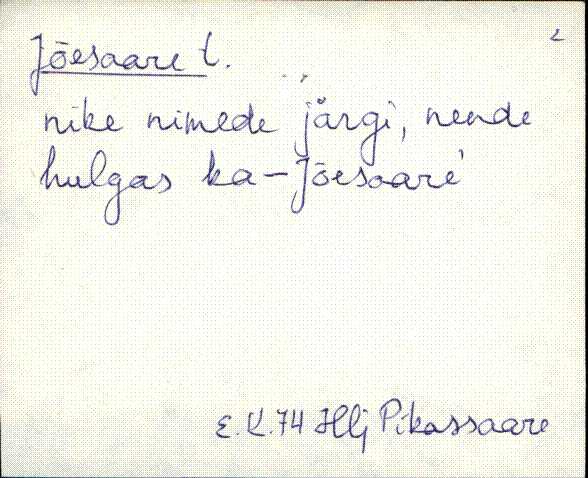 2
Jõesaare t.
nike nimede järgi, nende
hulgas ka – Jõesaare'
E.K.74 Hlj Pikassaare